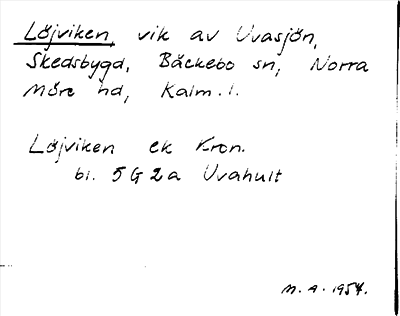 Löjviken, vik av Uvasjön,
Skedsbygd, Bäckebo sn, Norra
Möre hd, Kalm. l.
Löjviken ek Kron.
bl. 5 G 2 a Uvahult
M. A. 1954.